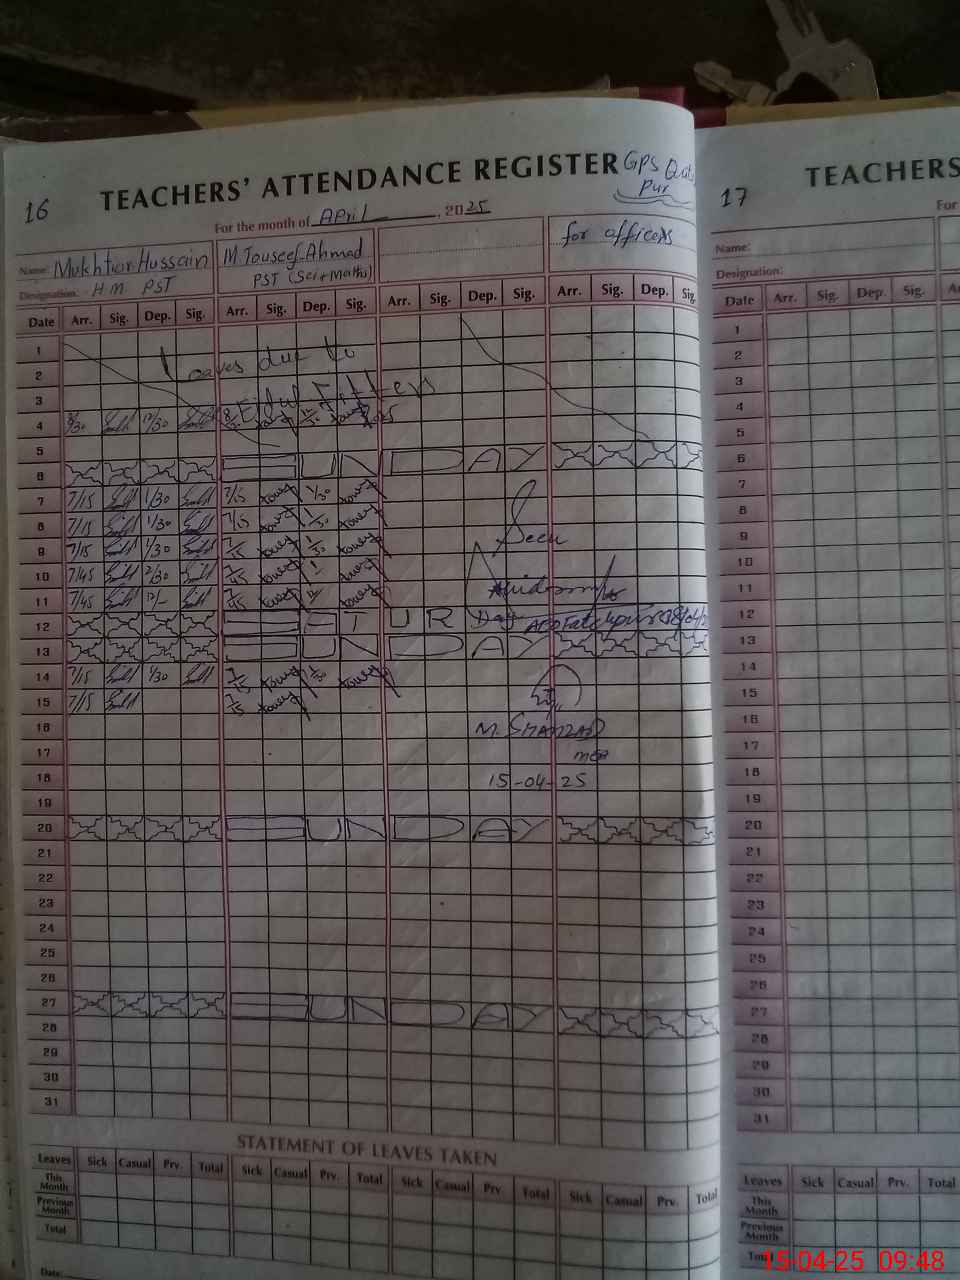 16
TEACHERS' ATTENDANCE REGISTER GPS
Pur
For the month of April, 2025
Name: Mukhtiar Hussain M Touseef Ahmad for officers
Designation. HM PST PST (Sci+Math)
Date Arr. Sig. Dep. Sig. Arr. Sig. Dep. Sig. Arr. Sig. Dep. Sig. Arr. Sig. Dep. Sig.
1
2 Leaves due to
3 Eid ul
4 8/30 12/30
5
6 SUNDAY
7 7/15 1/30 7/15 1/30
8 7/15 1/30 7/15 1/30
9 7/15 1/30 7/15 1/30 Seen
10 7/45 12/30 7/45
11 7/45 12/- 7/45 12/-
12 SATUR Day AEO Fatehpur
13 SUNDAY
14 7/15 1/30 7/15 1/30
15 7/15 7/15
16 M. SHAHZAD
17 MEA
18 15-04-25
19
20 SUNDAY
21
22
23
24
25
26
27 SUNDAY
28
29
30
31
STATEMENT OF LEAVES TAKEN
Leaves Sick Casual Prv. Total Sick Casual Prv. Total Sick Casual Prv. Total Sick Casual Prv. Total
This Month
Previous Month
Total
Date:
17
TEACHERS
For
Name:
Designation:
Date Arr. Sig. Dep. Sig.
1
2
3
4
5
6
7
8
9
10
11
12
13
14
15
16
17
18
19
20
21
22
23
24
25
26
27
28
29
30
31
Leaves Sick Casual Prv. Total
This Month
Previous Month
Total
15-04-25 09:48